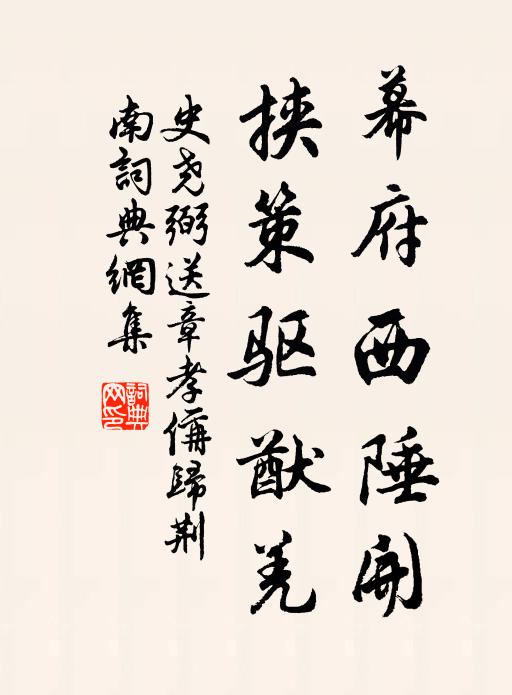 幕府西陲開
挟策驱猷羌
史尧弼送章孝傋歸荆
南詞典網集
詞典網印